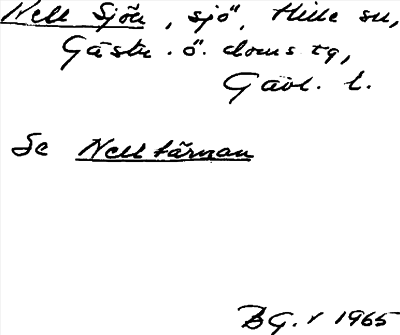 Nell Sjön, sjö, Hille sn,
Gästr. ö. doms tg,
Gävl. l.
Se Nelltärnan
BG. r 1965